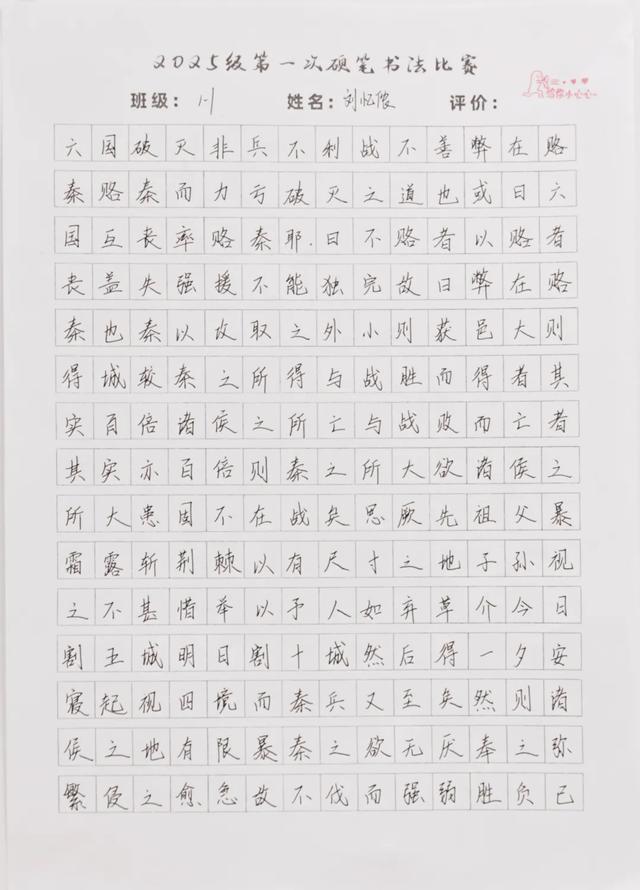 2025级第一次硬笔书法比赛
班级: 1-1 姓名: 刘忆侬 评价:
给你小心心~
六国破灭非兵不利战不善弊在赂
秦赂秦而力亏破灭之道也或曰六
国互丧率赂秦耶.曰不赂者以赂者
丧盖失强援不能独完故曰弊在赂
秦也秦以攻取之外小则获邑大则
得城较秦之所得与战胜而得者其
实百倍诸侯之所亡与战败而亡者
其实亦百倍则秦之所大欲诸侯之
所大患固不在战矣思厥先祖父暴
霜露斩荆棘以有尺寸之地子孙视
之不甚惜举以予人如弃草介今日
割五城明日割十城然后得一夕安
寝起视四境而秦兵又至矣然则诸
侯之地有限暴秦之欲无厌奉之弥
繁侵之愈急故不伐而强弱胜负已